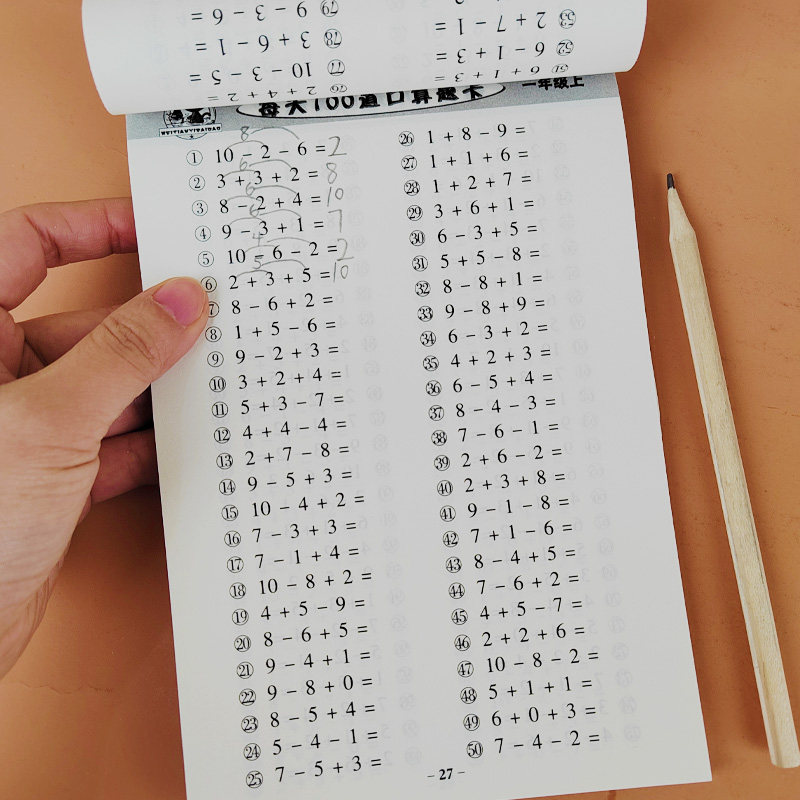 79 9 − 3 − 6 =
53 2 + 7 − 1 =
78 3 + 6 − 1 =
52 6 − 1 + 3 =
77 10 − 3 − 5 =
51 6 + 1 + 3 =
76 2 + 4 + 2 =
每天100道口算题卡
一年级上
MEITIANYIBAIDAO
8
① 10 − 2 − 6 = 2
6
② 3 + 3 + 2 = 8
6
③ 8 − 2 + 4 = 10
6
④ 9 − 3 + 1 = 7
4
⑤ 10 − 6 − 2 = 2
5
⑥ 2 + 3 + 5 = 10
⑦ 8 − 6 + 2 =
⑧ 1 + 5 − 6 =
⑨ 9 − 2 + 3 =
⑩ 3 + 2 + 4 =
⑪ 5 + 3 − 7 =
⑫ 4 + 4 − 4 =
⑬ 2 + 7 − 8 =
⑭ 9 − 5 + 3 =
⑮ 10 − 4 + 2 =
⑯ 7 − 3 + 3 =
⑰ 7 − 1 + 4 =
⑱ 10 − 8 + 2 =
⑲ 4 + 5 − 9 =
⑳ 8 − 6 + 5 =
㉑ 9 − 4 + 1 =
㉒ 9 − 8 + 0 =
㉓ 8 − 5 + 4 =
㉔ 5 − 4 − 1 =
㉕ 7 − 5 + 3 =
㉖ 1 + 8 − 9 =
㉗ 1 + 1 + 6 =
㉘ 1 + 2 + 7 =
㉙ 3 + 6 + 1 =
㉚ 6 − 3 + 5 =
㉛ 5 + 5 − 8 =
㉜ 8 − 8 + 1 =
㉝ 9 − 8 + 9 =
㉞ 6 − 3 + 2 =
㉟ 4 + 2 + 3 =
㊱ 6 − 5 + 4 =
㊲ 8 − 4 − 3 =
㊳ 7 − 6 − 1 =
㊴ 2 + 6 − 2 =
㊵ 2 + 3 + 8 =
㊶ 9 − 1 − 8 =
㊷ 7 + 1 − 6 =
㊸ 8 − 4 + 5 =
㊹ 7 − 6 + 2 =
㊺ 4 + 5 − 7 =
㊻ 2 + 2 + 6 =
㊼ 10 − 8 − 2 =
㊽ 5 + 1 + 1 =
㊾ 6 + 0 + 3 =
㊿ 7 − 4 − 2 =
- 27 -